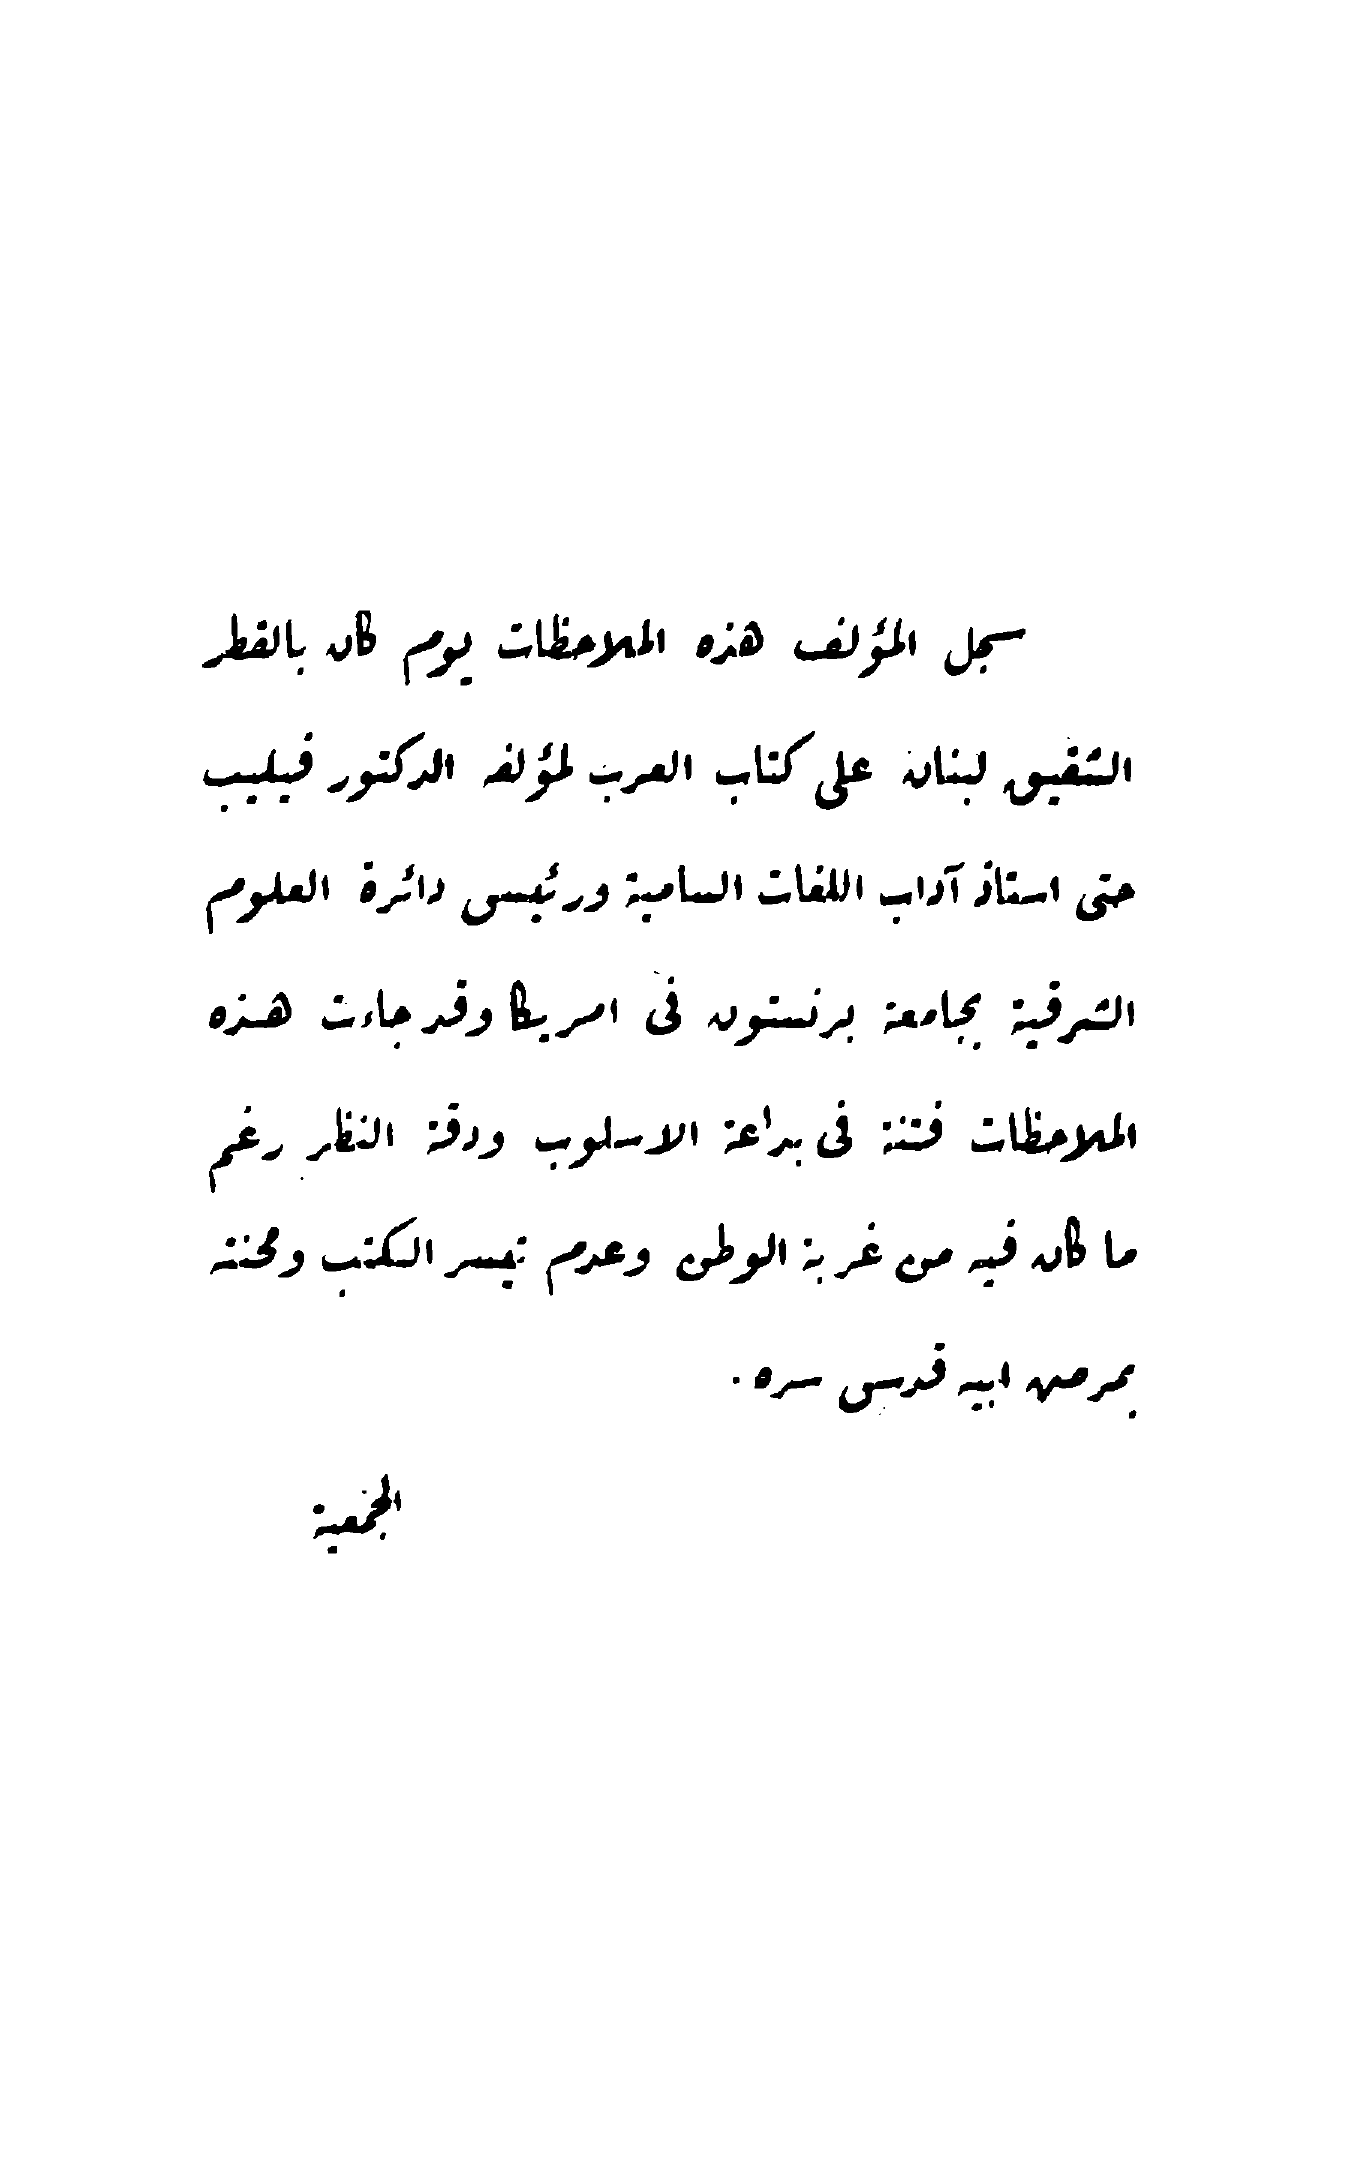 سجل المؤلف هذه الملاحظات يوم كان بالقطر
الشقيق لبنان على كتاب العرب لمؤلفه الدكتور فيليب
حتى استاذ آداب اللغات السامية ورئيس دائرة العلوم
الشرقية بجامعة برنستون فى امريكا وقد جاءت هذه
الملاحظات فتنة فى بداعة الاسلوب ودقة النظر رغم
ما كان فيه من غربة الوطن وعدم تيسر الكتب ومحنته
بمرض ابيه قدس سره .
الجمعية